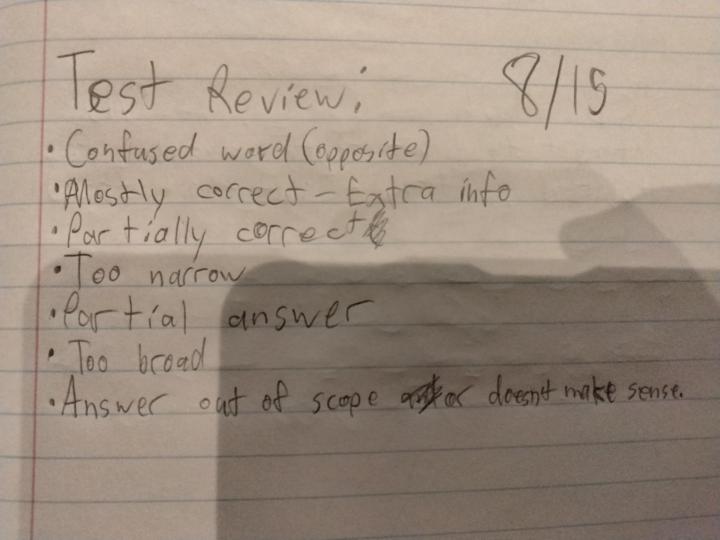 Test Review: 8/15
• Confused word (opposite)
• Mostly correct - Extra info
• Partially correct
• Too narrow
• Partial answer
• Too broad
• Answer out of scope or doesn't make sense.